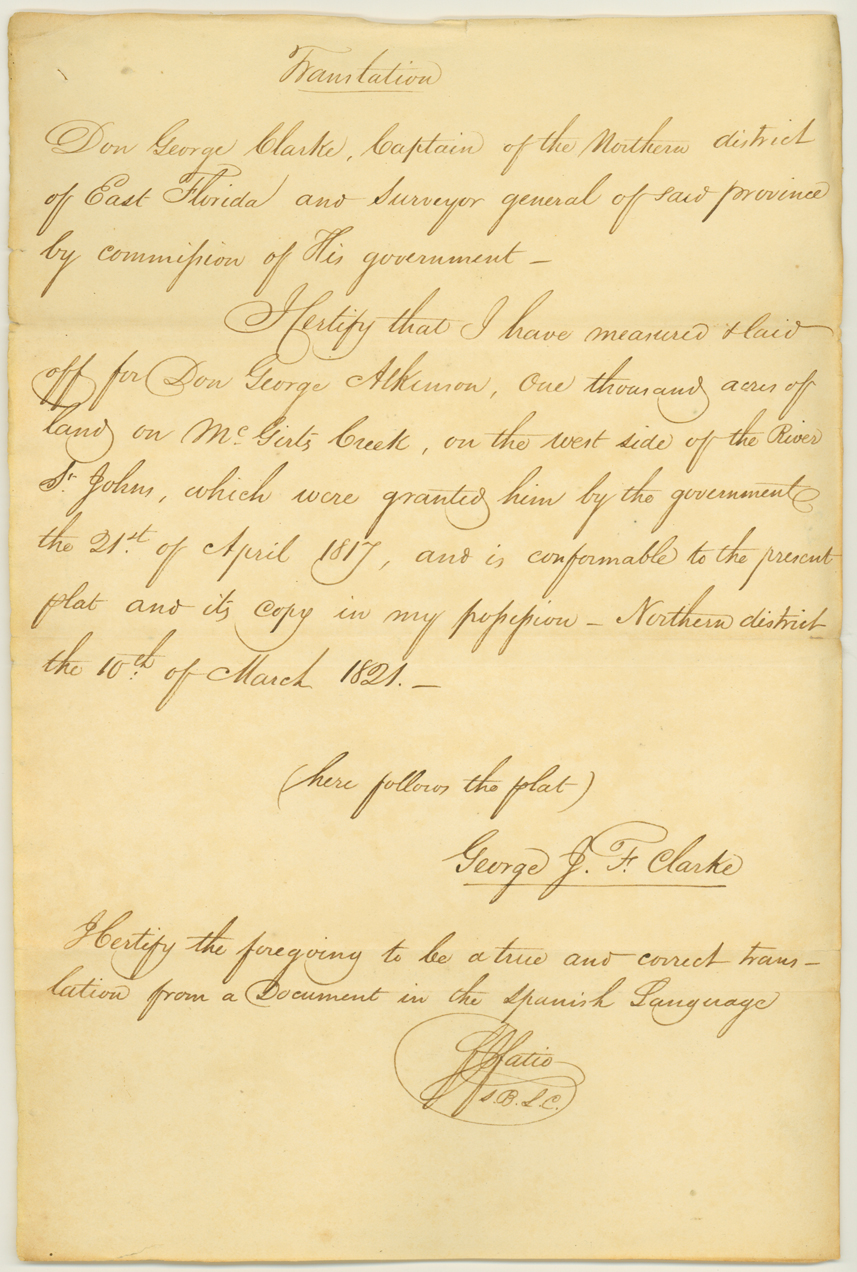 Translation
Don George Clarke, Captain of the Northern district
of East Florida and Surveyor general of said province
by commission of His government –
I Certify that I have measured & laid
off for Don George Atkinson, One thousand acres of
land on Mc Girts Creek, on the west side of the River
St. Johns, which were granted him by the government
the 21st of April 1817, and is conformable to the present
plat and its copy in my possession – Northern district
the 10th of March 1821. –
(here follows the plat)
George J. F. Clarke
I Certify the foregoing to be a true and correct trans-
lation from a Document in the Spanish Language
Fatio
S.B.L.C.